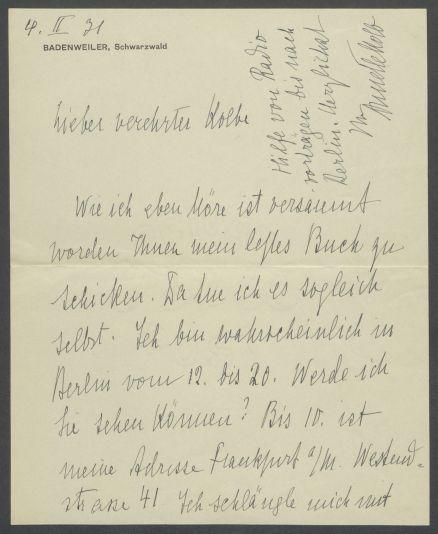 4. II 31
BADENWEILER, Schwarzwald
Lieber verehrter Kolbe
Wie ich eben höre ist versäumt
worden Ihnen mein letztes Buch zu
schicken. Da tue ich es sogleich
selbst. Ich bin wahrscheinlich in
Berlin vom 12. bis 20. Werde ich
Sie sehen können? Bis 10. ist
meine Adresse Frankfurt a/M. Westend-
straße 41 Ich schlängle mich mit
Hilfe von Radio
vorträgen bis nach
Berlin. Herzlichst
Ihre
Annette Kolb